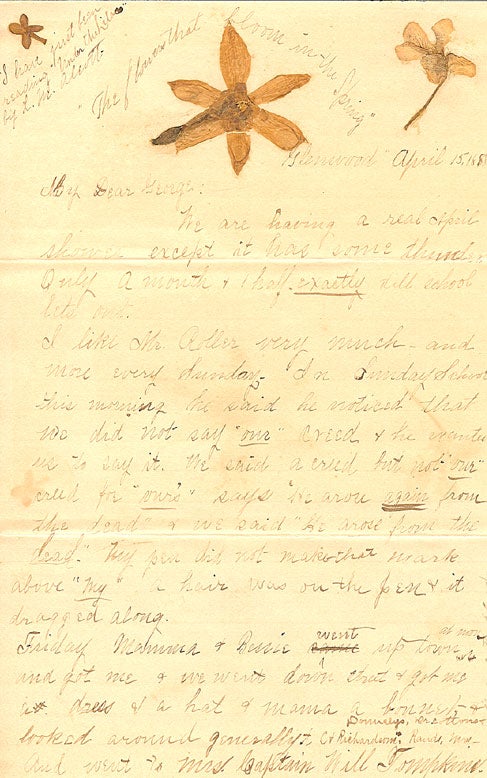 "I have just been
reading "Under the Lilacs"
by L. M. Alcott.
"The flowers that bloom in the Spring"
"Glenwood" April 15, 188
My Dear George:
We are having a real April
shower except it has some thunder
Only a month & 1 half exactly till school
lets out.
I like Mr. Roller very much - and
more every Sunday. In Sunday School
this morning he said he noticed that
we did not say "our" creed & he wanted
us to say it. We said a creed but not "our"
creed for "ours" says "He arose again from
the dead" & we said "He arose from the
dead." My pen did not make that mark
above "My" a hair was on the pen & it
dragged along.
Friday Mamma & Bessie went up town
and got me & we went down street & got me
a dress & a hat & mama a bonnet &
looked around generally,
And went to Mrs Captain Will Tompkins